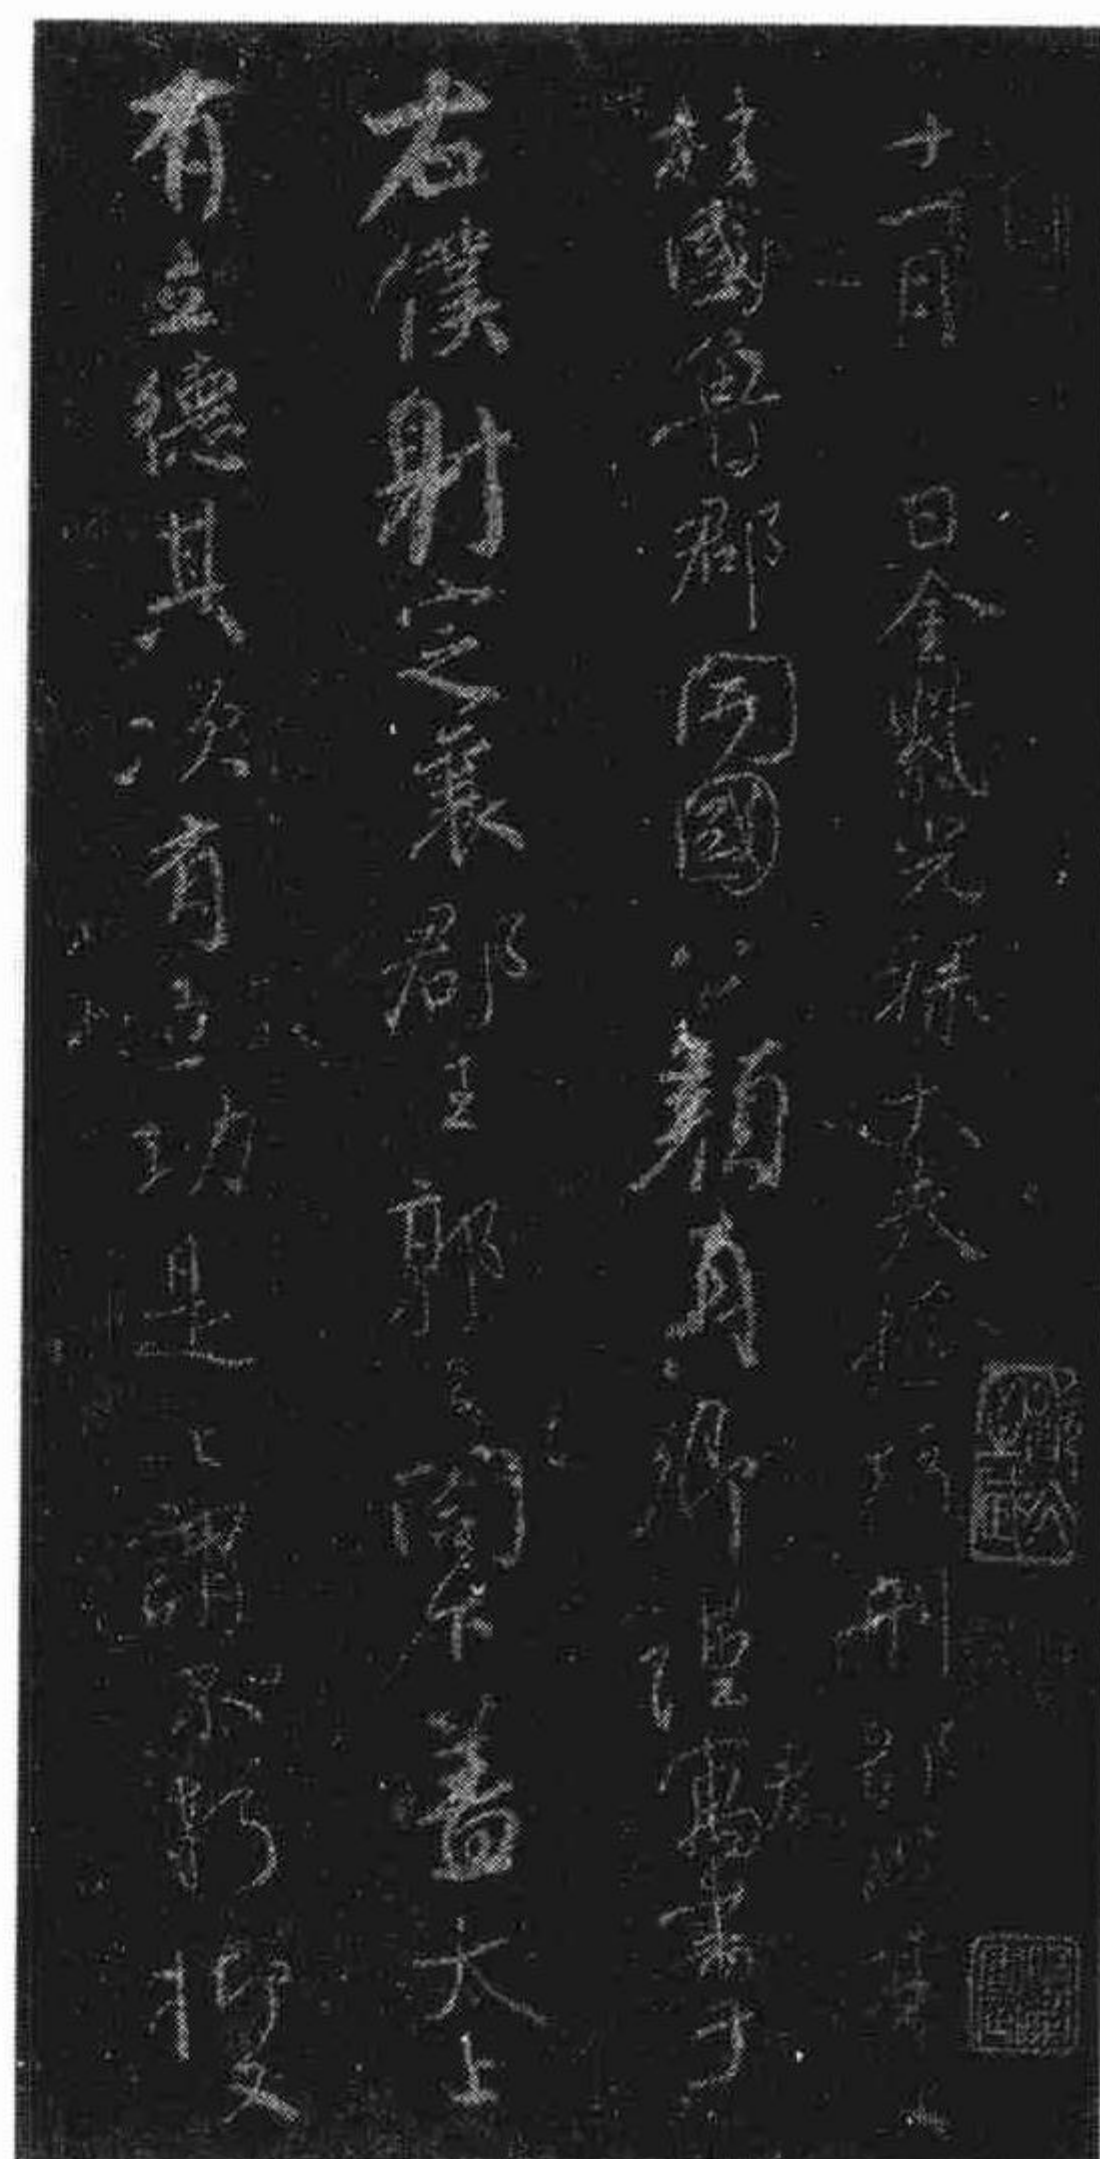 十一月日金紫光祿大夫檢校刑部尚書上
柱國魯郡開國公顏真卿謹寓書于
右僕射定襄郡王郭公閣下蓋太上
有立德其次有立功是之謂不朽抑又